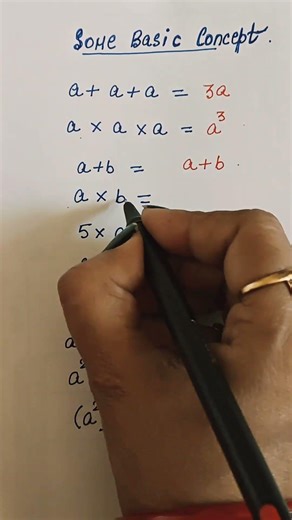 SOME BASIC CONCEPT.
a + a + a = 3a
a × a × a = a³
a + b = a + b.
a × b =
5 ×
a²
(a²